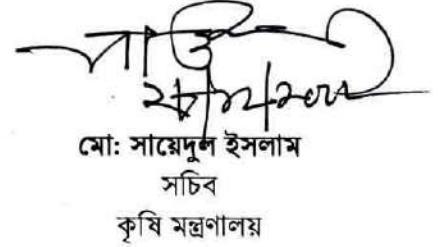 মো: সায়েদুল ইসলাম
সচিব
কৃষি মন্ত্রণালয়